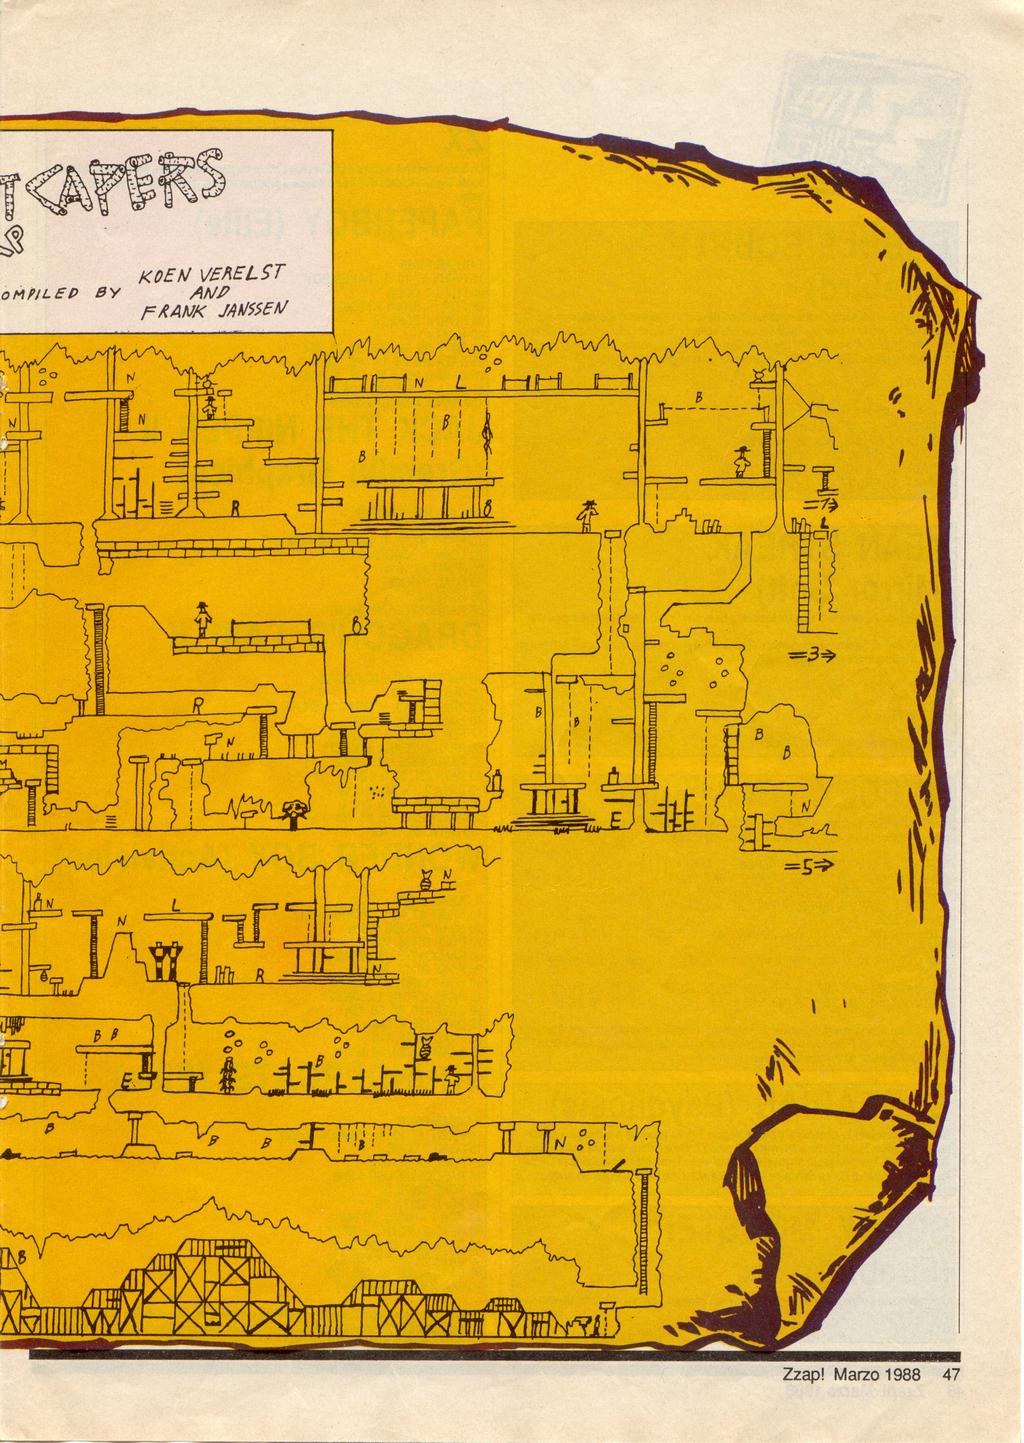 T CAPERS
AP
OMPILED BY KOEN VERELST
AND
FRANK JANSSEN
N
N L
B
N
N
B
B
R
B
=1⇒
L
B
=3⇒
R
B
B
B
B
N
N
M
E
=5⇒
N
N
L
N
R
N
B B
B
E
B
B
B
B
N
L
B
Zzap! Marzo 1988 47